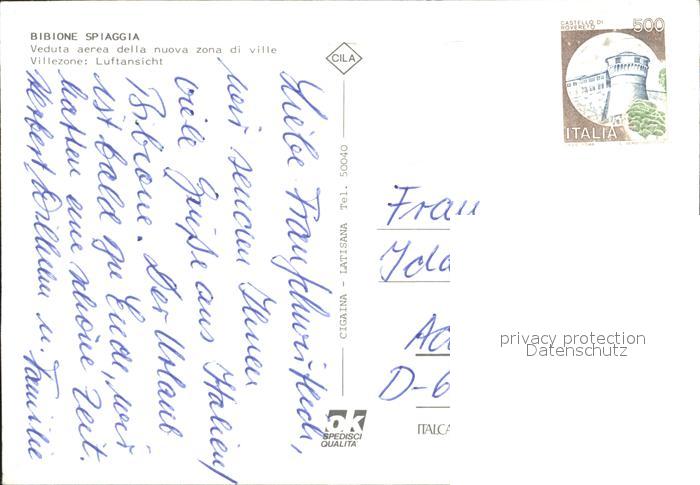 BIBIONE SPIAGGIA
Veduta aerea della nuova zona di ville
Villezone: Luftansicht
CILA
CASTELLO DI
ROVERETO
500
ITALIA
Liebe
wir senden Ihnen
viele Grüße aus Italien/
Bibione. Der Urlaub
ist bald zu Ende, wir
hatten eine schöne Zeit.
Herbert, u. Familie
CIGAINA - LATISANA Tel. 50040
Frau
Ida
D-6
ok
SPEDISCI
QUALITA'
ITALCA
privacy protection
Datenschutz